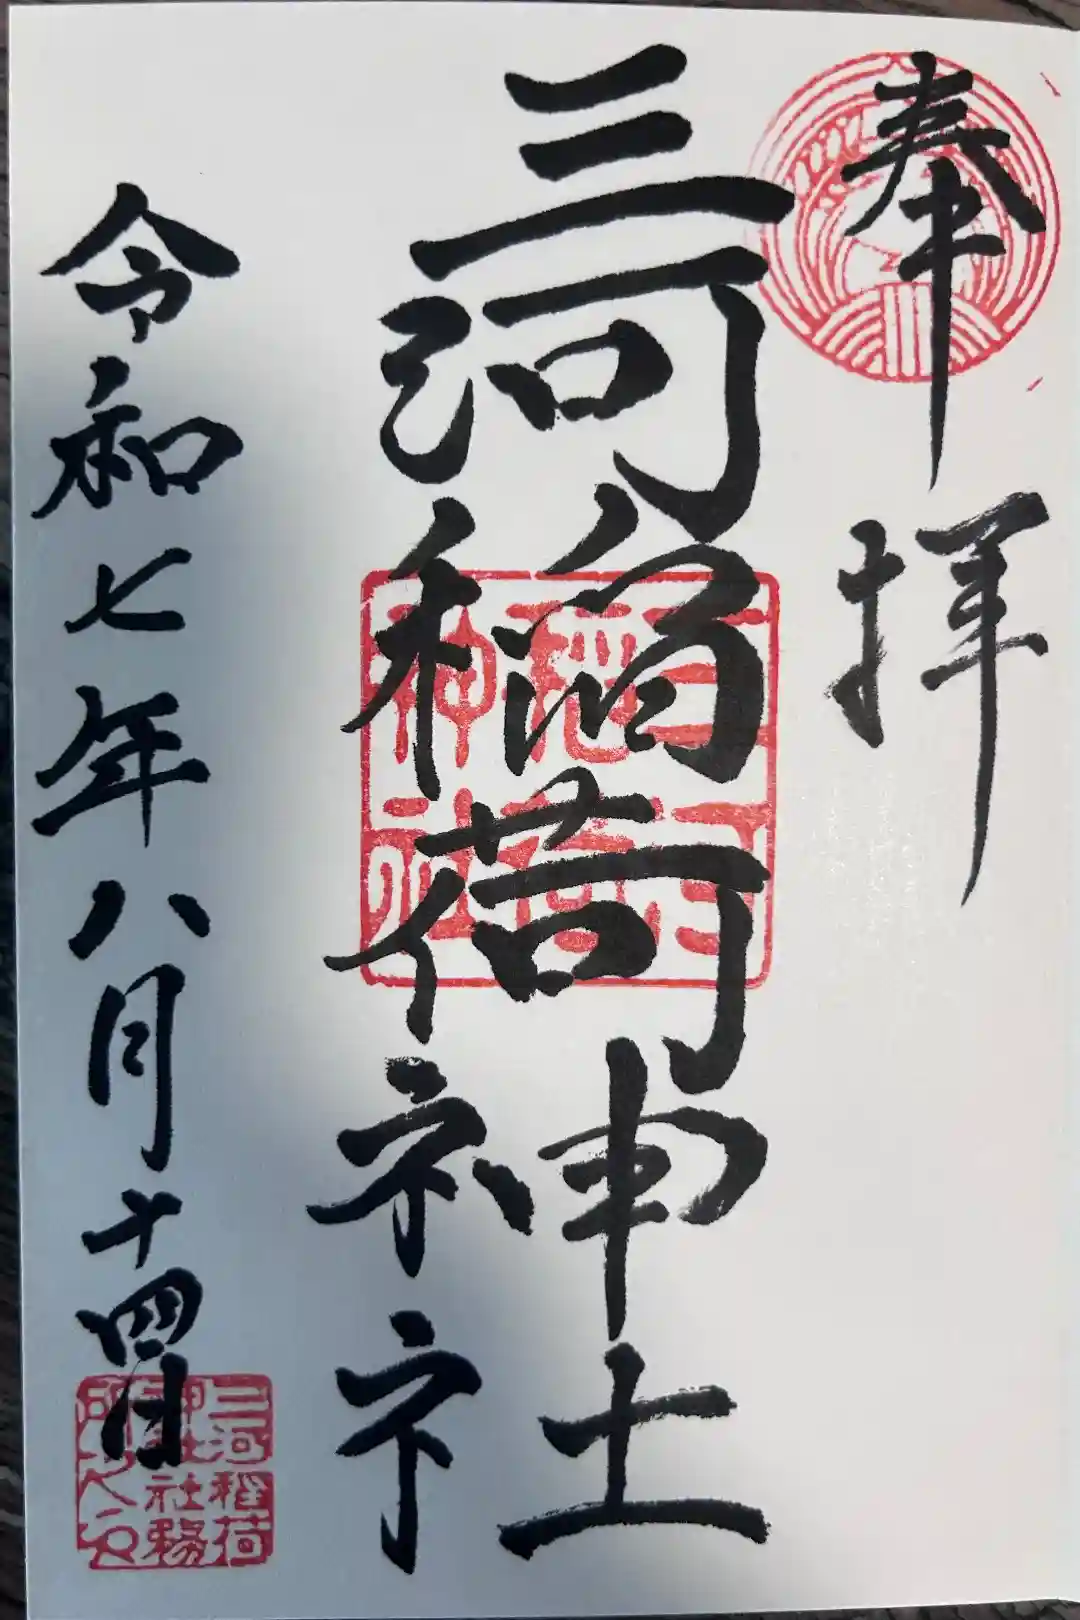 奉拝
三河稲荷神社
令和七年八月十四日
三河
稲荷
神社
三河稲荷
神社社務
所之印